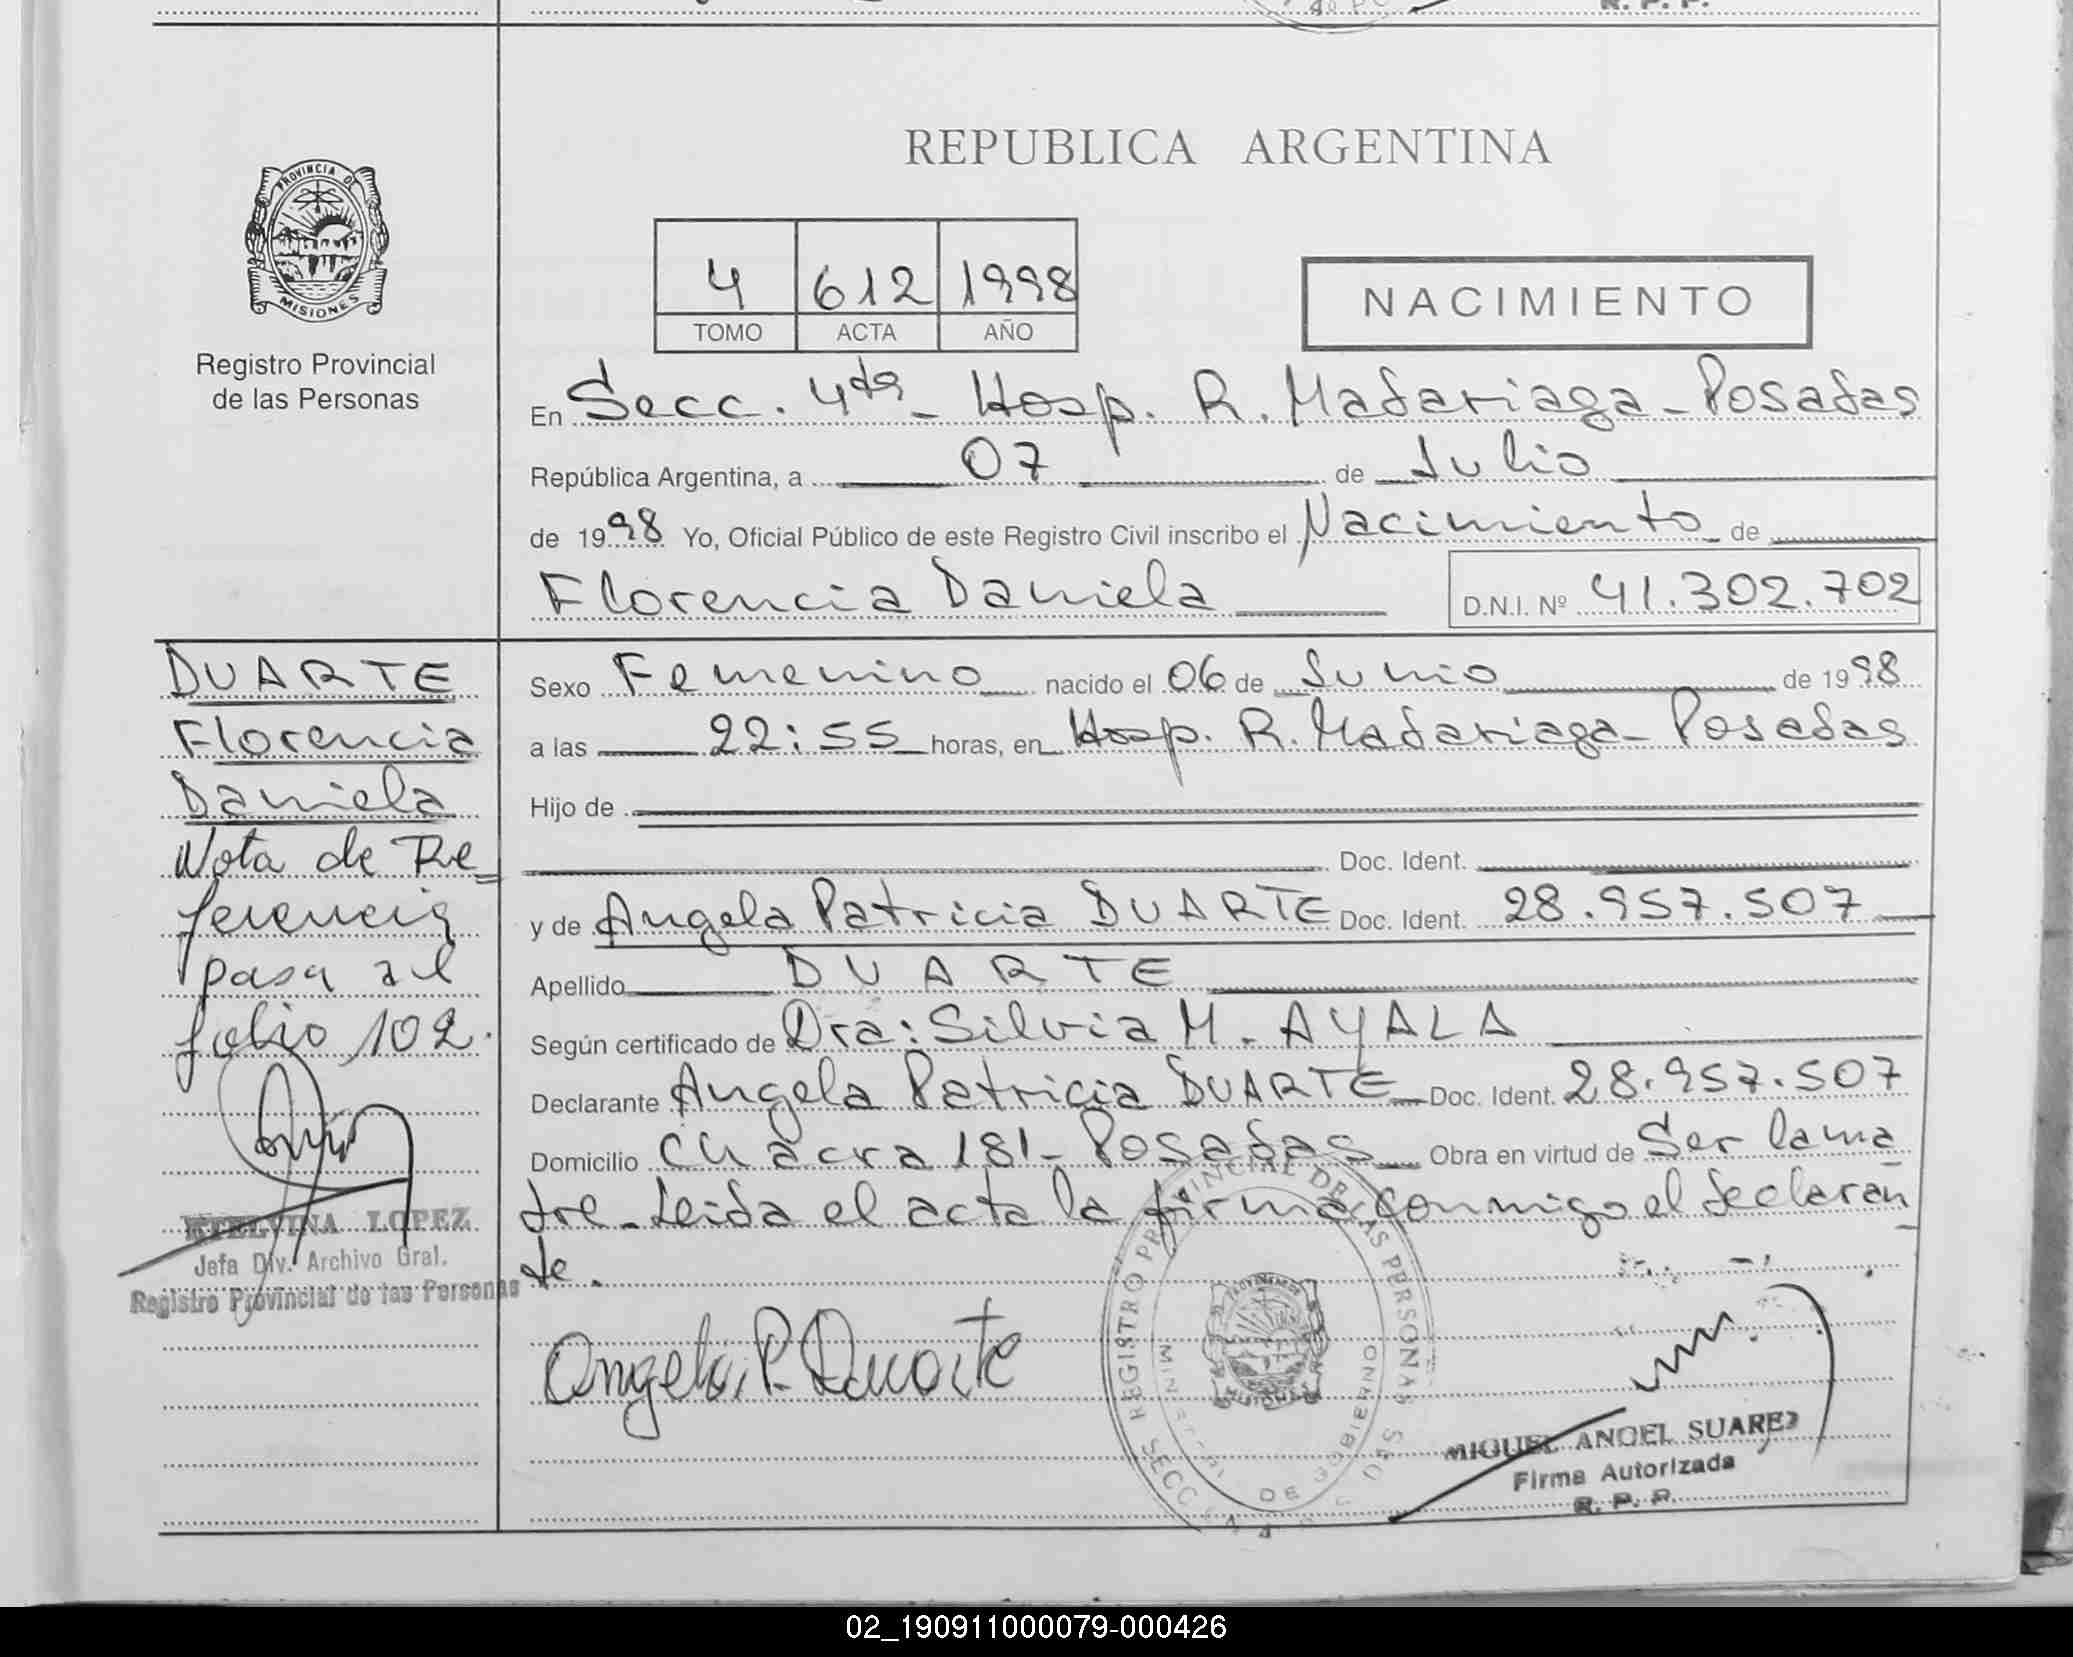 REPUBLICA ARGENTINA
PROVINCIA DE
MISIONES
Registro Provincial
de las Personas
4 612 1998
TOMO ACTA AÑO
NACIMIENTO
En Secc. 4ta - Hosp. R. Madariaga - Posadas
República Argentina, a 07 de Julio
de 1998 Yo, Oficial Público de este Registro Civil inscribo el Nacimiento de
Florencia Daniela D.N.I. Nº 41.302.702
DUARTE
Florencia
Daniela
Nota de Re=
ferencia
pasa al
folio 102.
ETELVINA LOPEZ
Jefa Div. Archivo Gral.
Registro Provincial de las Personas
Sexo Femenino nacido el 06 de Junio de 1998
a las 22:55 horas, en Hosp. R. Madariaga - Posadas
Hijo de
Doc. Ident.
y de Angela Patricia DUARTE Doc. Ident. 28.957.507
Apellido DUARTE
Según certificado de Dra: Silvia M. AYALA
Declarante Angela Patricia DUARTE Doc. Ident. 28.957.507
Domicilio Chacra 181 - Posadas Obra en virtud de Ser la ma
dre - Leida el acta la firma conmigo el declaran
te.
Angela P. Duarte
REGISTRO PROVINCIAL DE LAS PERSONAS
DE GOBIERNO
MIGUEL ANGEL SUAREZ
Firma Autorizada
R. P. P.
02_190911000079-000426